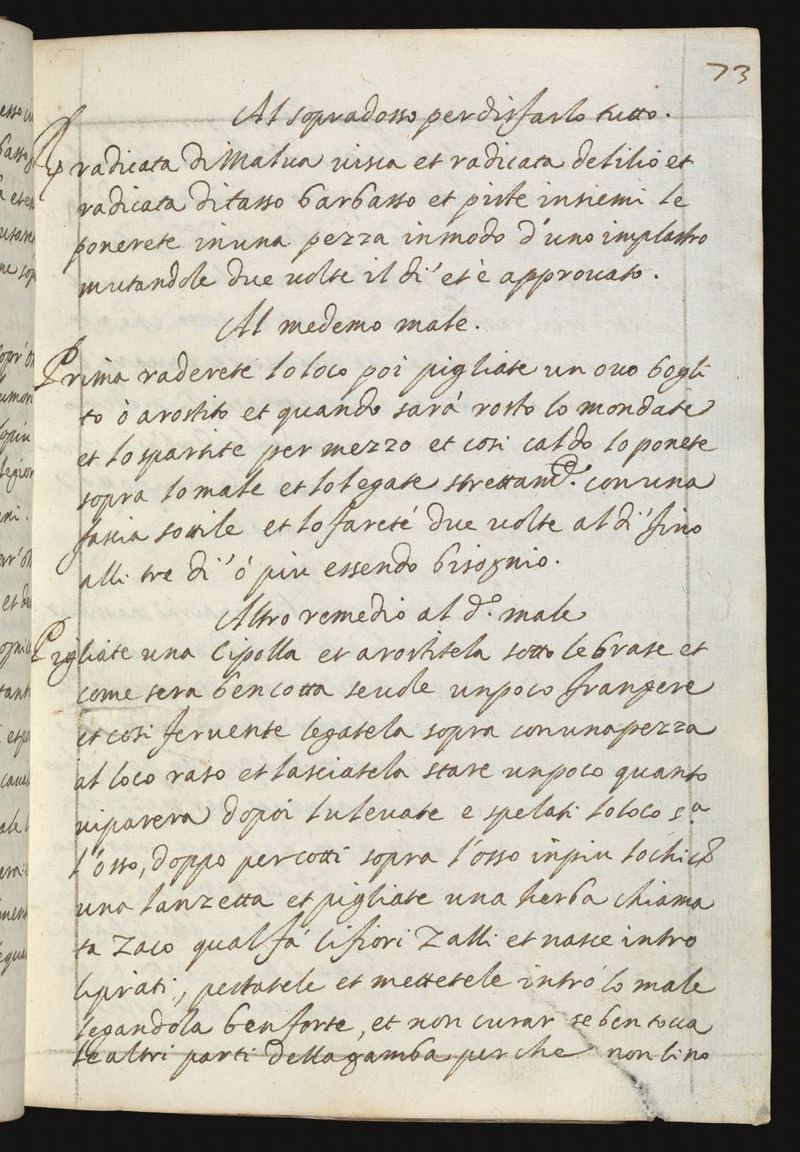 73
Al sopradosso per disfarlo tutto.
Rp radicata di Malua uisca et radicata de lilio et
radicata di tasso barbasso et piste insiemi le
ponerete in una pezza in modo d'uno implastro
mutandole due uolte il di' et è approuato.
Al medemo male.
Prima raderete lo loco poi pigliate un ouo bogli
to ò arostito et quando sarà rosto lo mondate
et lo spartite per mezzo et cosi caldo lo ponete
sopra lo male et lo legate strettamte. con una
fascia sottile et lo fareté due uolte al di' fino
alli tre di' ó piu essendo bisognio.
Altro remedio al do. male
Pigliate una Cipolla et arostitela sotto le brase et
come sera ben cotta seuole un poco frangere
et cosi feruente legatela sopra con una pezza
al loco raso et lasciatela stare un poco quanto
ui parera dopoi lu leuate e spelati lo loco sa.
l'osso, doppo percotti sopra l'osso in piu lochi
una lanzetta et pigliate una herba chiama
ta Zaco qual fá li fiori Zalli et nasce intro
li prati, pestatele et mettetele intrò lo male
legandola ben forte, et non curar se ben tocca
le altri parti della gamba perche non li no